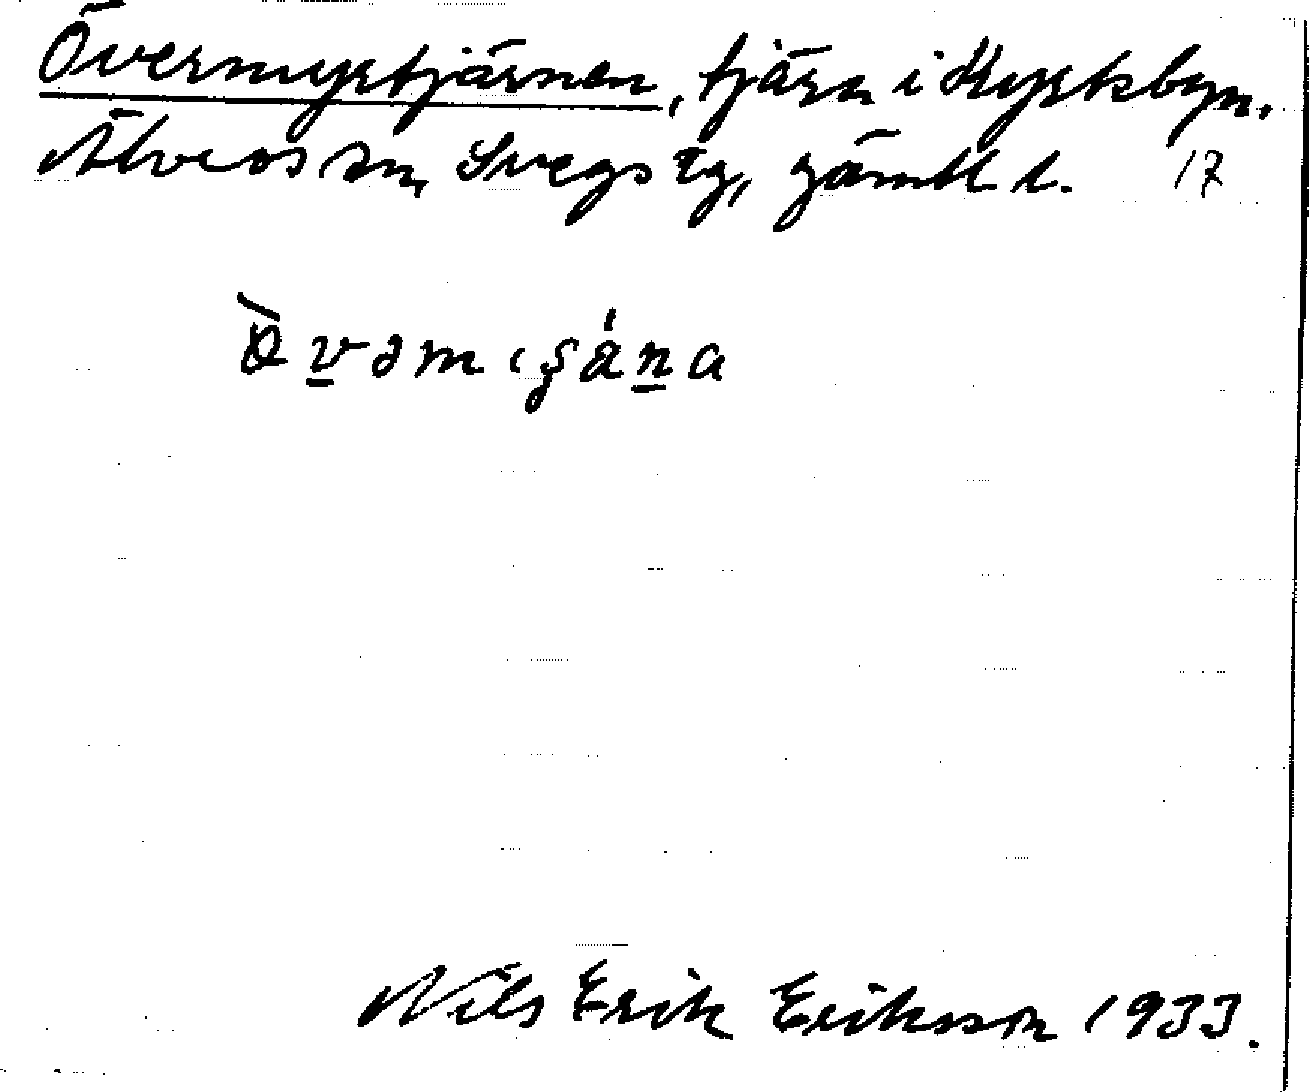 Övermyrtjärnen, tjärn i Kyrkbyn,
Älvros sn, Svegs tg, Jämtl l. 17
Nils Erik Eriksson 1933.